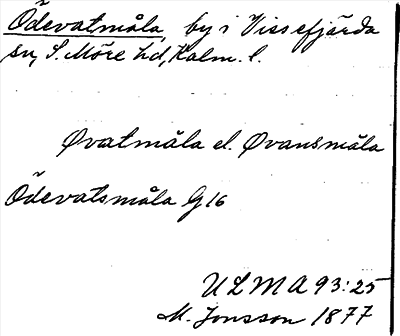 Ödevatmåla, by i Vissefjärda
sn, S. Möre hd, Kalm. l.
Øvatmåla el. Øvansmåla
Ödevatsmåla G16
ULMA 93:25
M. Jonsson 1877